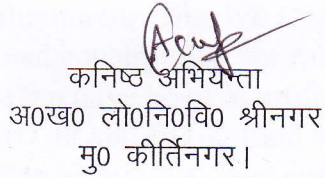 कनिष्ठ अभियन्ता
अ0ख0 लो0नि0वि0 श्रीनगर
मु0 कीर्तिनगर।